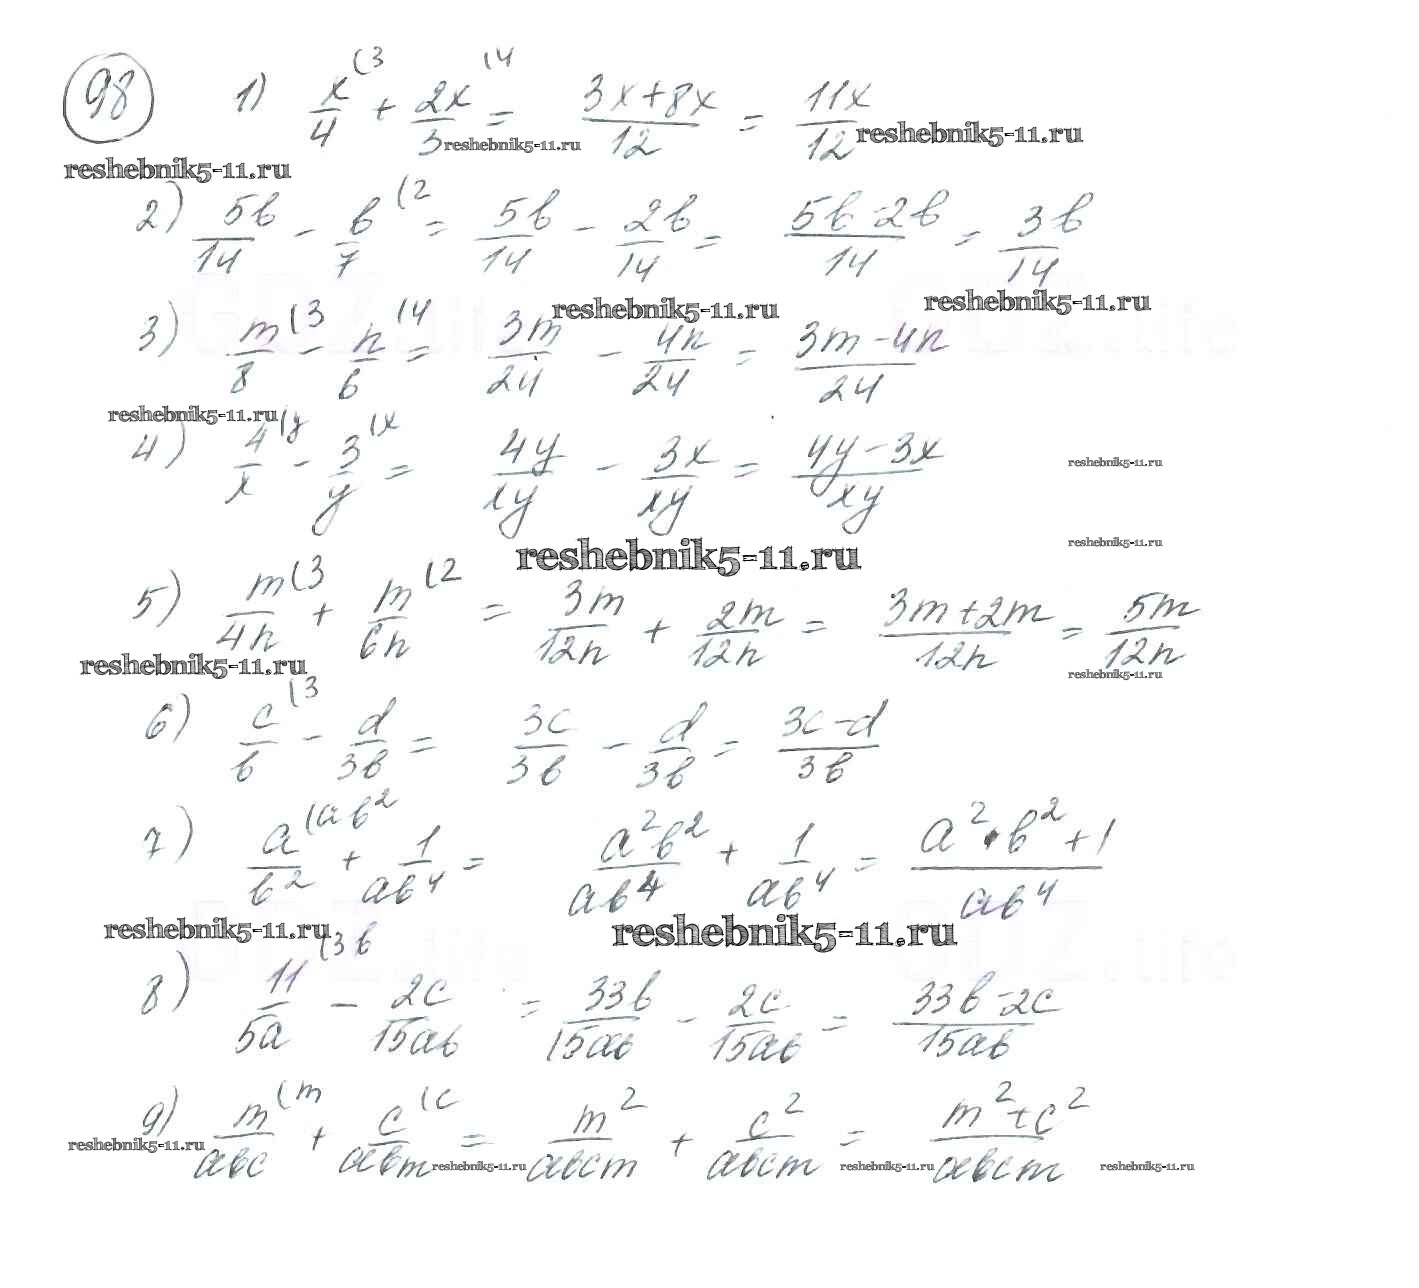 98 1) x/4 (3 + 2x/3 (4 = 3x+8x/12 = 11x/12
reshebnik5-11.ru reshebnik5-11.ru reshebnik5-11.ru
2) 5b/14 - b/7 (2 = 5b/14 - 2b/14 = 5b-2b/14 = 3b/14
reshebnik5-11.ru reshebnik5-11.ru
3) m/8 (3 - n/6 (4 = 3m/24 - 4n/24 = 3m-4n/24
reshebnik5-11.ru
4) 4/x (y - 3/y (x = 4y/xy - 3x/xy = 4y-3x/xy
reshebnik5-11.ru
reshebnik5-11.ru reshebnik5-11.ru
5) m/4n (3 + m/6n (2 = 3m/12n + 2m/12n = 3m+2m/12n = 5m/12n
reshebnik5-11.ru reshebnik5-11.ru
6) c/b (3 - d/3b = 3c/3b - d/3b = 3c-d/3b
7) a/b² (ab² + 1/ab⁴ = a²b²/ab⁴ + 1/ab⁴ = a²·b²+1/ab⁴
reshebnik5-11.ru reshebnik5-11.ru
8) 11/5a (3b - 2c/15ab = 33b/15ab - 2c/15ab = 33b-2c/15ab
9) m/abc (m + c/abm (c = m²/abcm + c²/abcm = m²+c²/abcm
reshebnik5-11.ru reshebnik5-11.ru reshebnik5-11.ru reshebnik5-11.ru